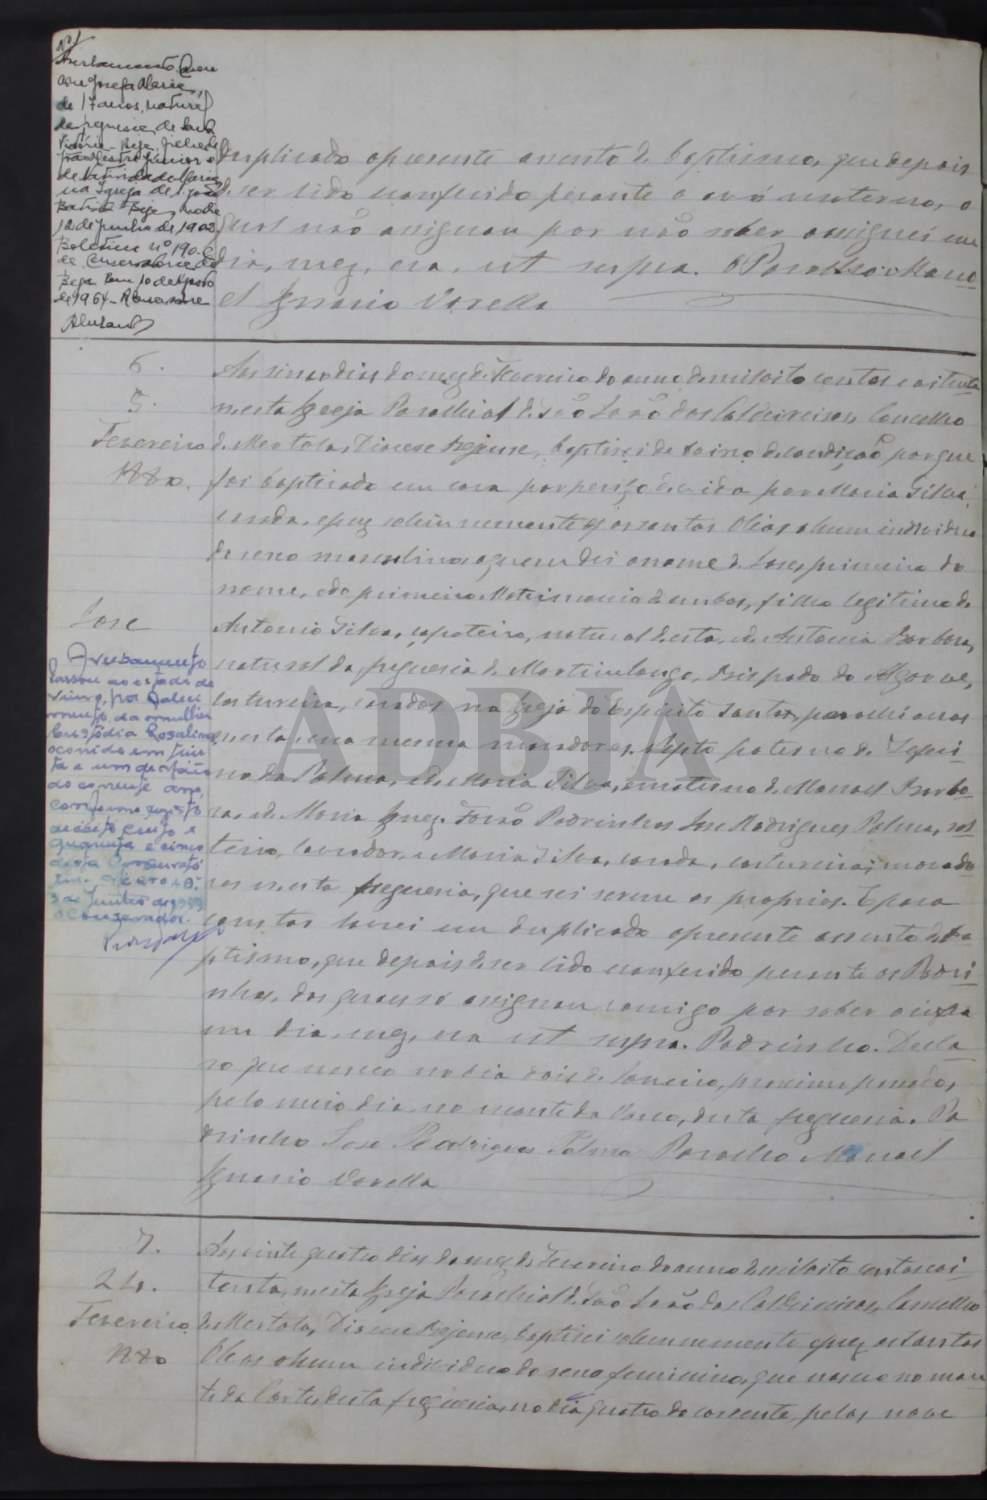 Nº 1
Averbamento Casou
com Josefa Maria,
de 17 anos, natural
da freguesia de Santa
Vitória - Beja, filha de
e
de Natividade Maria
na Igreja de S. João
Batista Beja, no dia
12 de Junho de 1903
Boletim nº 190. C
da Conservatória de
Beja. Em 10 de Agosto
de 1964 -
duplicado o presente assento de baptismo, que depois
de ser lido e conferido perante a avó materna, o
qual não assignou por não saber assignei em
dia, mez, era, ut supra. O Parocho Mano
el Ignacio Varella
6.
5.
Fevereiro
1880.
José
Averbamento
Passou ao estado de
viuvo, por faleci
mento da mulher
Custódia Rosalina
ocorrido em trin
ta e um de
do corrente ano,
conforme registo
de óbito cento e
quarenta e cinco
desta Conservató
ria. Mertola,
de Junho de 1959
O Conservador
Aos cinco dias do mez de Fevereiro do anno de mil oito centos e oitenta
nesta Igreja Parochial de São João dos Caldeireiros, Concelho
de Mertola, Diocese Bejense, baptisei de baixo de condição porque
foi baptisado em casa por perigo de vida por Maria Silva,
casada, e puz solemnemente os santos Oleos a hum individuo
do sexo masculino a quem dei o nome de José, primeiro do
nome, e do primeiro Matrimonio de ambos, filho legitimo de
Antonio Silva, sapateiro, natural desta, e de Antonia Barbosa,
natural da freguesia de Martinlongo, Bispado do Algarve,
costureira, casados na Igreja do Espirito Santo, parochianos
nesta, e na mesma moradores. Nepto paterno de Zeferi
no da Palma, e de Maria Silva, e materno de Manoel Barbo
sa, e de Maria Ignez. Forão Padrinhos José Rodrigues Palma, sol
teiro, lavrador, e Maria Silva, casada, costureira, morado
res nesta freguesia, que sei serem os proprios. E para
constar lavrei em duplicado o presente assento de ba
ptismo, que depois de ser lido e conferido perante os Padri
nhos, dos quaes só assignou comigo por saber o
em dia, mez, era ut supra. Padrinho. Decla
ro que nasceu no dia dois de Janeiro, proximo passado,
pelo meio dia no monte da desta freguesia. Pa
drinho José Rodrigues Palma Parocho Manoel
Ignacio Varella
7.
24.
Fevereiro
1880
Aos vinte quatro dias do mez de Fevereiro do anno de mil oito centos e oi
tenta, nesta Igreja Parochial de São João dos Caldeireiros, Concelho
de Mertola, Diocese Bejense, baptisei solemnemente e puz os santos
Oleos a hum individuo do sexo feminino, que nasceu no mon
te da Corte, desta freguesia, no dia quatro do corrente, pelas nove
ADBJA